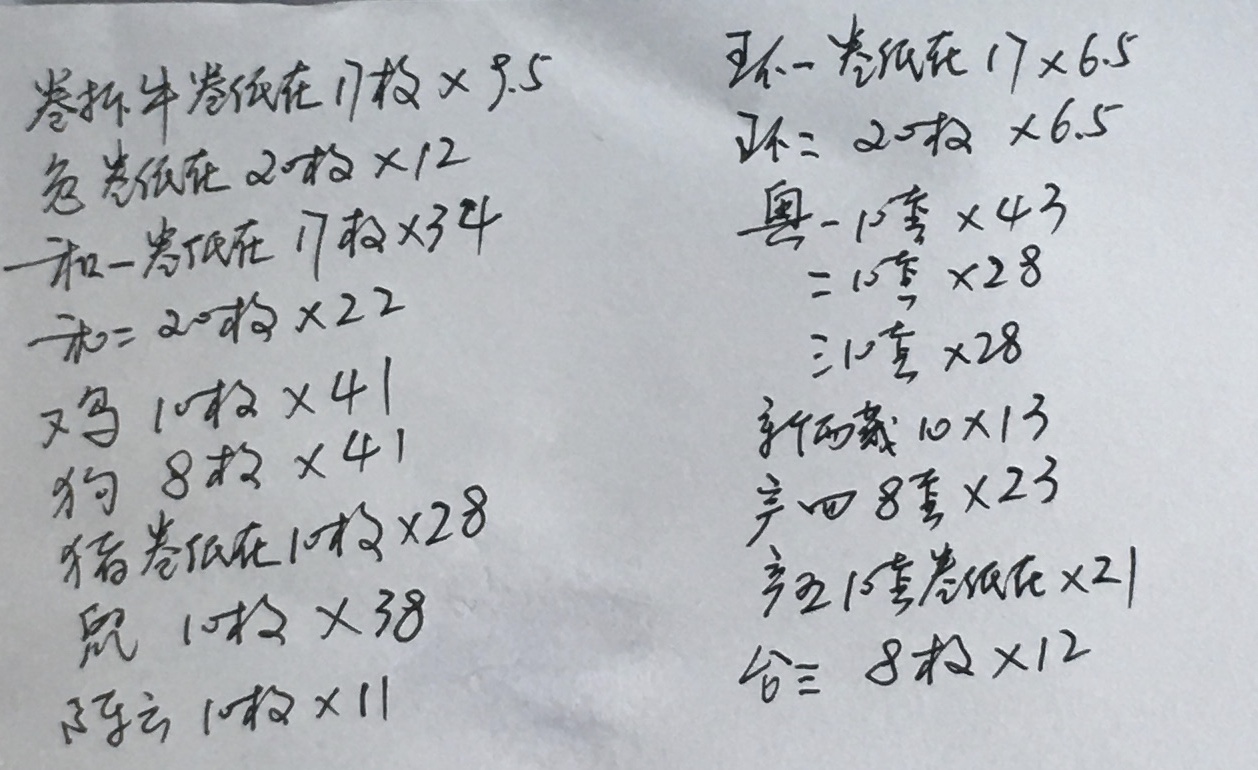 卷拆牛卷纸在17枚×9.5
龙卷纸在20枚×12
和一卷纸在17枚×34
和二20枚×22
鸡10枚×41
狗8枚×41
猪卷纸在10枚×28
鼠10枚×38
陈云10枚×11
环一卷纸在17×6.5
环二20枚×6.5
奥一10套×43
二10套×28
三10套×28
新西藏10×13
辛四8套×23
辛五10套卷纸在×21
台三8枚×12